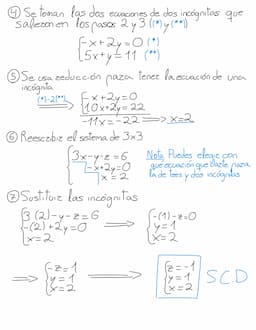 ④ Se toman las dos ecuaciones de dos incógnitas que
salieron en los pasos 2 y 3 (*) y (**)
-x+2y=0 (*)
5x+y=11 (**)
⑤ Se usa reducción para tener la ecuación de una
incógnita
(*)-2(**) ⟹ -x+2y=0
10x+2y=22
-11x=-22 ⟹ x=2
⑥ Reescribir el sistema de 3x3
3x-y-z=6
-x+2y=0
x=2
Nota: Puedes elegir con
qué ecuación quedarte para
la de tres y dos incógnitas
⑦ Sustituir las incógnitas
3(2)-y-z=6
-(2)+2y=0
x=2
⟹
-(1)-z=0
y=1
x=2
⟹
-z=1
y=1
x=2
⟹
z=-1
y=1
x=2
S.C.D